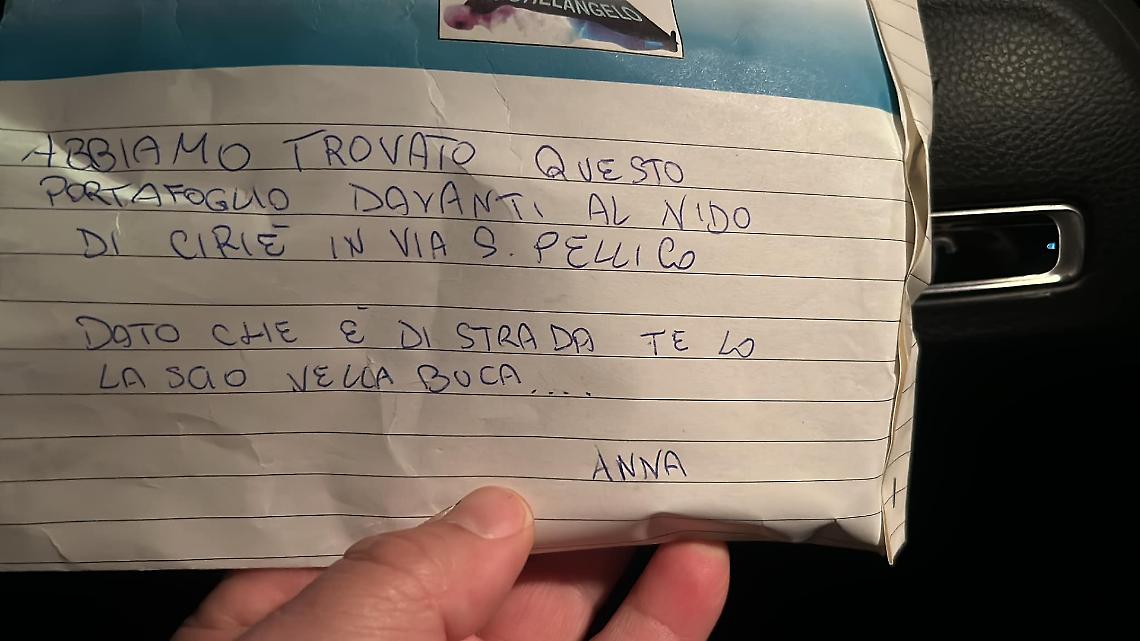 ABBIAMO TROVATO QUESTO
PORTAFOGLIO DAVANTI AL NIDO
DI CIRIÈ IN VIA S. PELLICO
DATO CHE È DI STRADA TE LO
LASCIO NELLA BUCA....
ANNA